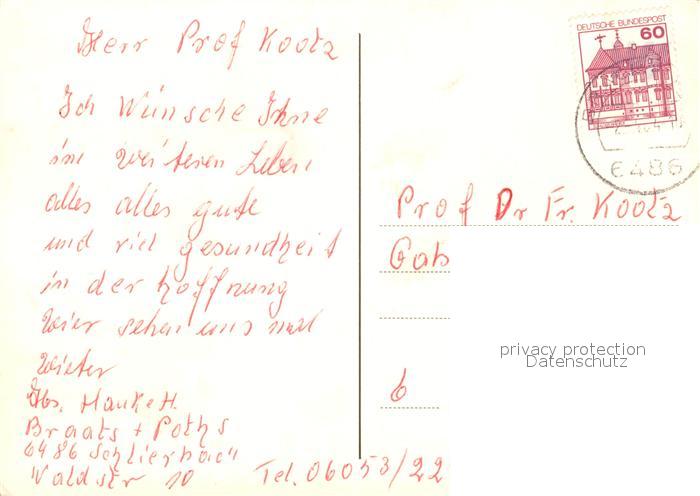 Herr Prof Kootz
Ich Wünsche Ihne
im weiteren Leben
alles alles gute
und viel gesundheit
in der hoffnung
wier sehen uns mal
wieter
Hauke H.
Braats + Poths
6486 Schlierbach
Waldstr 10
Tel. 06053/22
DEUTSCHE BUNDESPOST
60
6486
Prof Dr Fr. Kootz
Gab
6
privacy protection
Datenschutz